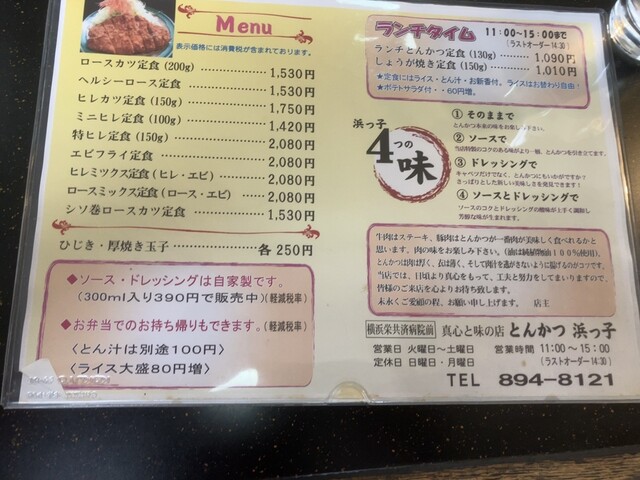 Menu
表示価格には消費税が含まれております。
ロースカツ定食 (200g) ………… 1,530円
ヘルシーロース定食 ………… 1,530円
ヒレカツ定食 (150g) ………… 1,750円
ミニヒレ定食 (100g) ………… 1,420円
特ヒレ定食 (150g) ………… 2,080円
エビフライ定食 ………… 2,080円
ヒレミックス定食 (ヒレ・エビ) ………… 2,080円
ロースミックス定食 (ロース・エビ) ……… 2,080円
シソ巻ロースカツ定食 ………… 1,530円
ひじき・厚焼き玉子 ………… 各 250円
◆ソース・ドレッシングは自家製です。
(300ml入り390円で販売中)(軽減税率)
◆お弁当でのお持ち帰りもできます。(軽減税率)
〈とん汁は別途100円〉
〈ライス大盛80円増〉
ランチタイム 11:00~15:00まで
(ラストオーダー14:30)
ランチとんかつ定食 (130g) ……… 1,090円
しょうが焼き定食 (150g) ……… 1,010円
★定食にはライス・とん汁・お新香付。ライスはお替わり自由!
★ポテトサラダ付・・60円増。
浜っ子
4つの
味
① そのままで
とんかつ本来の味をお楽しみ下さい。
② ソースで
当店特製のコクのある味がより一層、とんかつを引き立てます。
③ ドレッシングで
キャベツだけでなく、とんかつにもいかがですか?
さっぱりとした新しい美味しさを発見できます!
④ ソースとドレッシングで
ソースのコクとドレッシングの酸味が上手く調和し
芳醇な味が生まれます。
牛肉はステーキ、豚肉はとんかつが一番肉が美味しく食べれるかと
思います。肉の味をお楽しみ下さい。(油は純植物油100%使用)。
とんかつは肉は厚く、衣は薄く、そして肉汁を逃がさないように揚げるのがコツです。
当店では、日頃より真心をもって、工夫と努力をしてまいりますので、
皆様のご来店を心よりお待ち致します。
末永くご愛顧の程、お願い申し上げます。 店主
横浜栄共済病院前 真心と味の店 とんかつ 浜っ子
営業日 火曜日~土曜日 営業時間 11:00~15:00
定休日 日曜日・月曜日 (ラストオーダー14:30)
TEL 894-8121